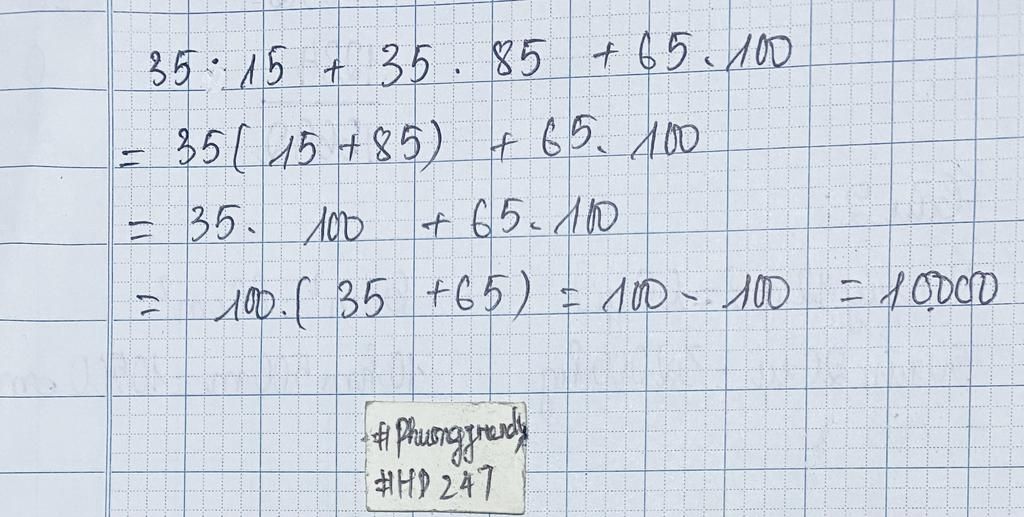 35 . 15 + 35 . 85 + 65 . 100
= 35 ( 15 + 85 ) + 65 . 100
= 35 . 100 + 65 . 100
= 100 . ( 35 + 65 ) = 100 . 100 = 10000
#HD 247